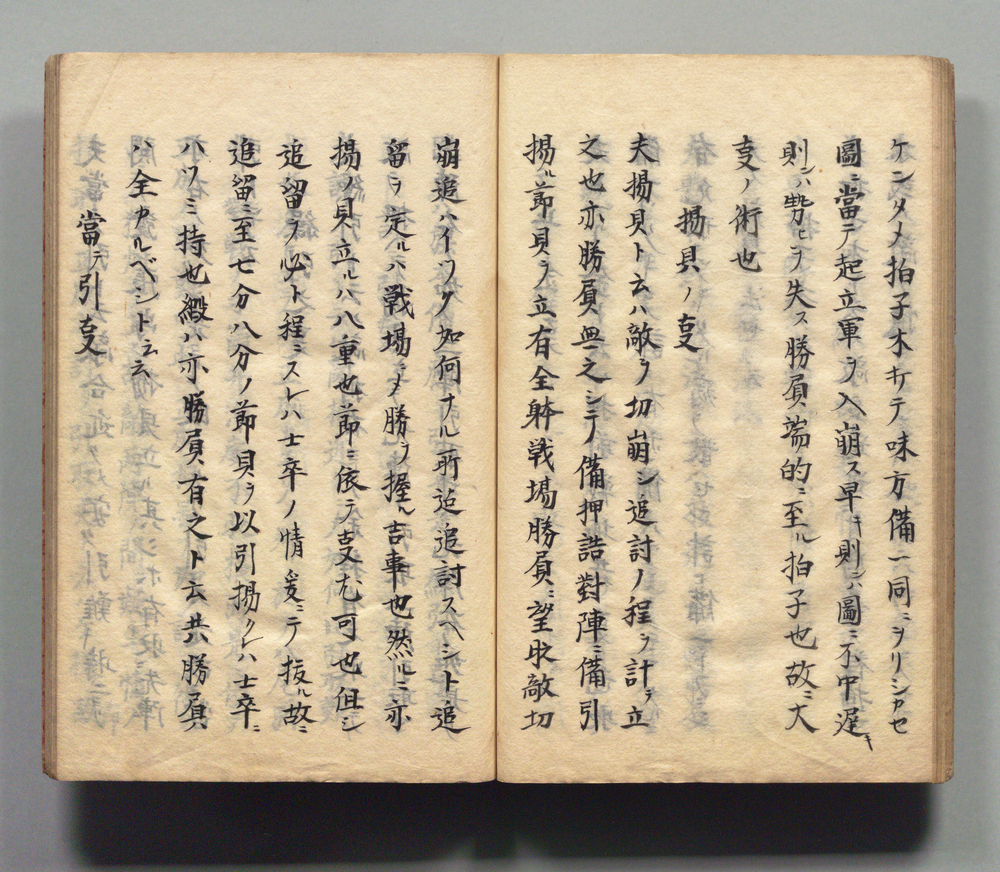 ケンタメ拍子木キテ味方備一同ニヲリシカセ
圖ニ當テ起立軍ヲ入崩ス早キ則ンハ圖ニ不中遅キ
則ンハ勢ヒヲ失ス勝負端的ニ至ル拍子也故ニ大
叓ノ術也
揚貝ノ叓
夫揚貝ト云ハ敵ヲ切崩シ追討ノ程ヲ計テ立
之也亦勝負無之シテ備押詰對陣ニ備引
揚ル節貝ヲ立有全躰戦場勝負ニ望味敵切
崩追ハイツク如何ナル所迠追討スヘシト追
留ヲ定ルハ戦場ニメ勝ヲ握ル吉事也然ルニ亦
揚ノ貝立ルハ八重也節ニ依テ叓尤可也但シ
追留ヲ必ト程ニスレハ士卒ノ情爰ニテ抜ル故ニ
追留ニ至七分八分ノ節貝ヲ以引揚クレハ士卒ニ
ハツミ持也緞ハ亦勝負有之ト云共勝負
ハ全カルベシト云云
當テ引叓